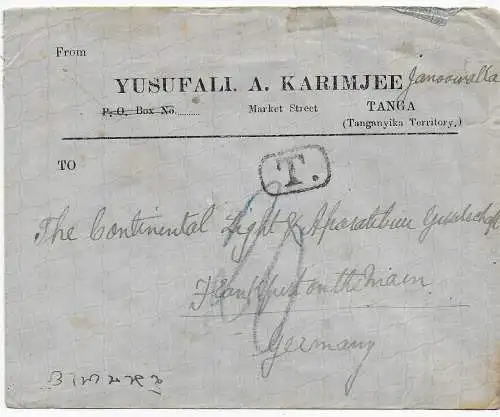 From
YUSUFALI. A. KARIMJEE
P. O. Box No.......... Market Street TANGA
(Tanganyika Territory.)
TO
T.
The Continental Light & Aparatebau Gesellschaft
Frankfurt on the Main
Germany